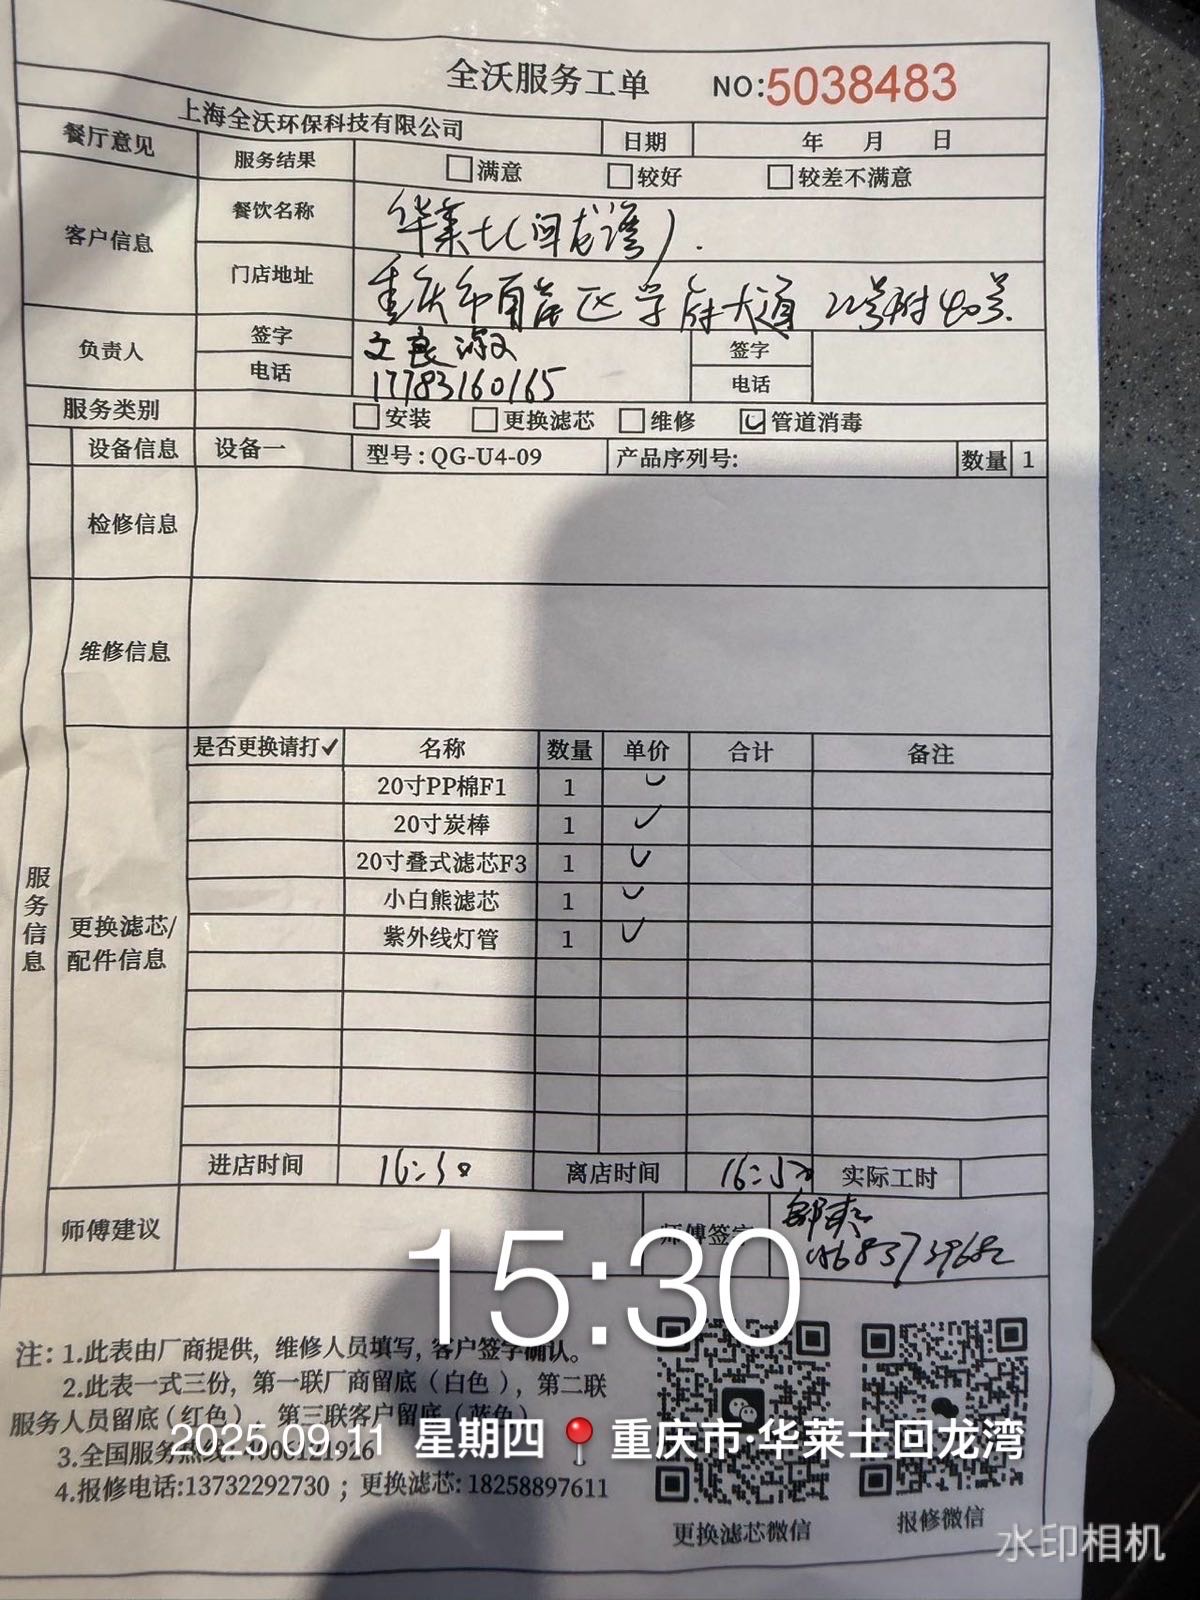 全沃服务工单 NO:5038483
上海全沃环保科技有限公司 日期 年 月 日
餐厅意见 服务结果 □满意 □较好 □较差不满意
客户信息 餐饮名称 华莱士(回龙湾).
门店地址 重庆市南岸区学府大道22号附40号
负责人 签字 文良淑 签字
电话 17783160165 电话
服务类别 □安装 □更换滤芯 □维修 ☑管道消毒
设备信息 设备一 型号:QG-U4-09 产品序列号: 数量 1
检修信息
维修信息
服务信息
更换滤芯/配件信息
是否更换请打✓ 名称 数量 单价 合计 备注
20寸PP棉F1 1 ✓
20寸炭棒 1 ✓
20寸叠式滤芯F3 1 ✓
小白熊滤芯 1 ✓
紫外线灯管 1 ✓
进店时间 16:30 离店时间 16:50 实际工时
师傅建议 师傅签字
15:30
注: 1.此表由厂商提供，维修人员填写，客户签字确认。
2.此表一式三份，第一联厂商留底（白色），第二联
服务人员留底（红色），第三联客户留底（蓝色）
3.全国服务热线: 4006121926
2025.09.11 星期四 📍重庆市·华莱士回龙湾
4.报修电话:13732292730 ；更换滤芯: 18258897611
更换滤芯微信 报修微信
水印相机